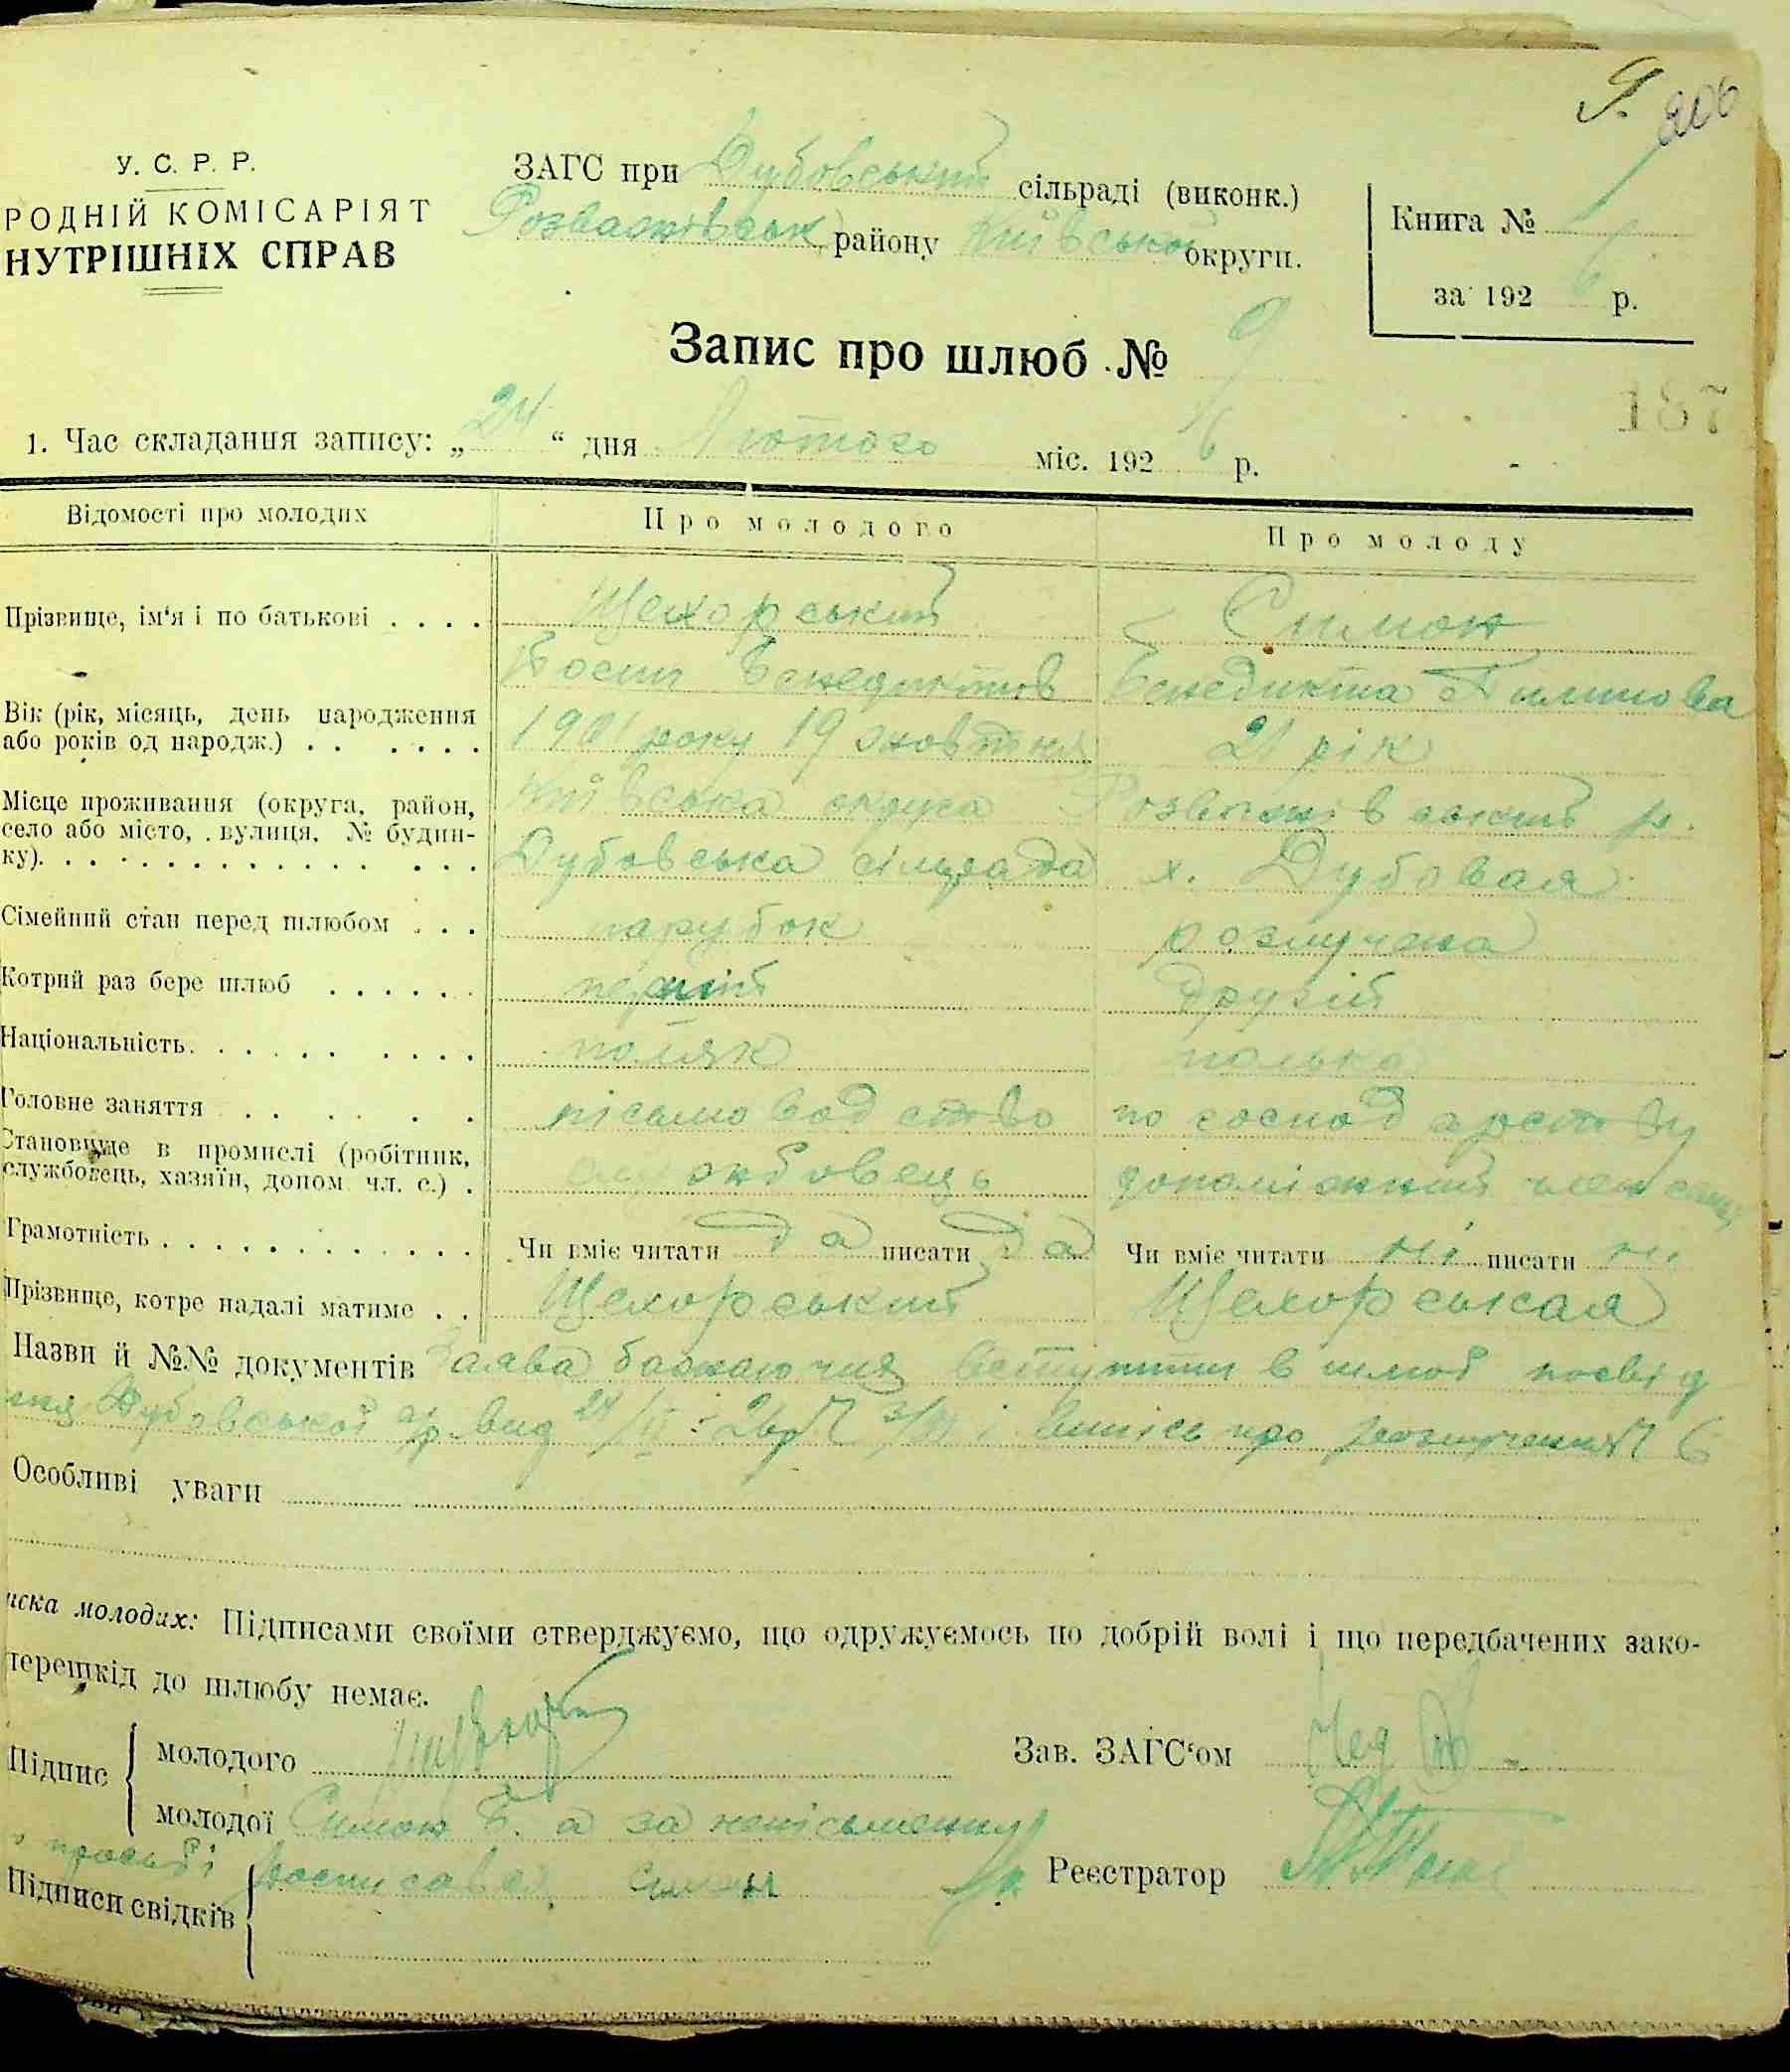 206
У. С. Р. Р.
РОДНІЙ КОМІСАРІЯТ
НУТРІШНІХ СПРАВ
ЗАГС при Дубовський сільраді (виконк.)
Розважівськ району Київської округи.
Книга №
за 192 6 р.
Запис про шлюб № 9
187
1. Час складання запису: „24“ дня Лютого міс. 192 6 р.
Відомості про молодих Про молодого Про молоду
Прізвище, ім'я і по батькові . . . . Щехорський Симон
Бенедиктов Бенедикта
Вік (рік, місяць, день народження
або років од народж.) . . . . . . 1901 року 19 жовтня 21 рік
Місце проживання (округа, район, Київська округа Розважівський р.
село або місто, . вулиця, № будин-
ку). . . . . . . . . . . . . . . Дубовська сільрада х. Дубовая
Сімейний стан перед шлюбом . . . парубок розлучена
Котрий раз бере шлюб . . . . . . перший другий
Національність. . . . . . . . . . поляк полька
Головне заняття . . . . . письмоводство по господарству
Становище в промислі (робітник,
службовець, хазяїн, допом. чл. с.) . службовець допоміжний член
Грамотність . . . . . . . . . . . . Чи вміє читати да писати да Чи вміє читати ні писати ні
Прізвище, котре надалі матиме . . Щехорський Щехорськая
Назви й №№ документів Заява бажаючих вступити в шлюб посвід
Дубовської с/р вид 24/II 26р і випись про розлучення № 6
Особливі уваги
иска молодих: Підписами своїми стверджуємо, що одружуємось по добрій волі і що передбачених зако-
перешкід до шлюбу немає.
Підпис
молодого
Зав. ЗАГС'ом
молодої Симон Б. а за неписьменну
просьбі росписався
Реєстратор
Підписи свідків